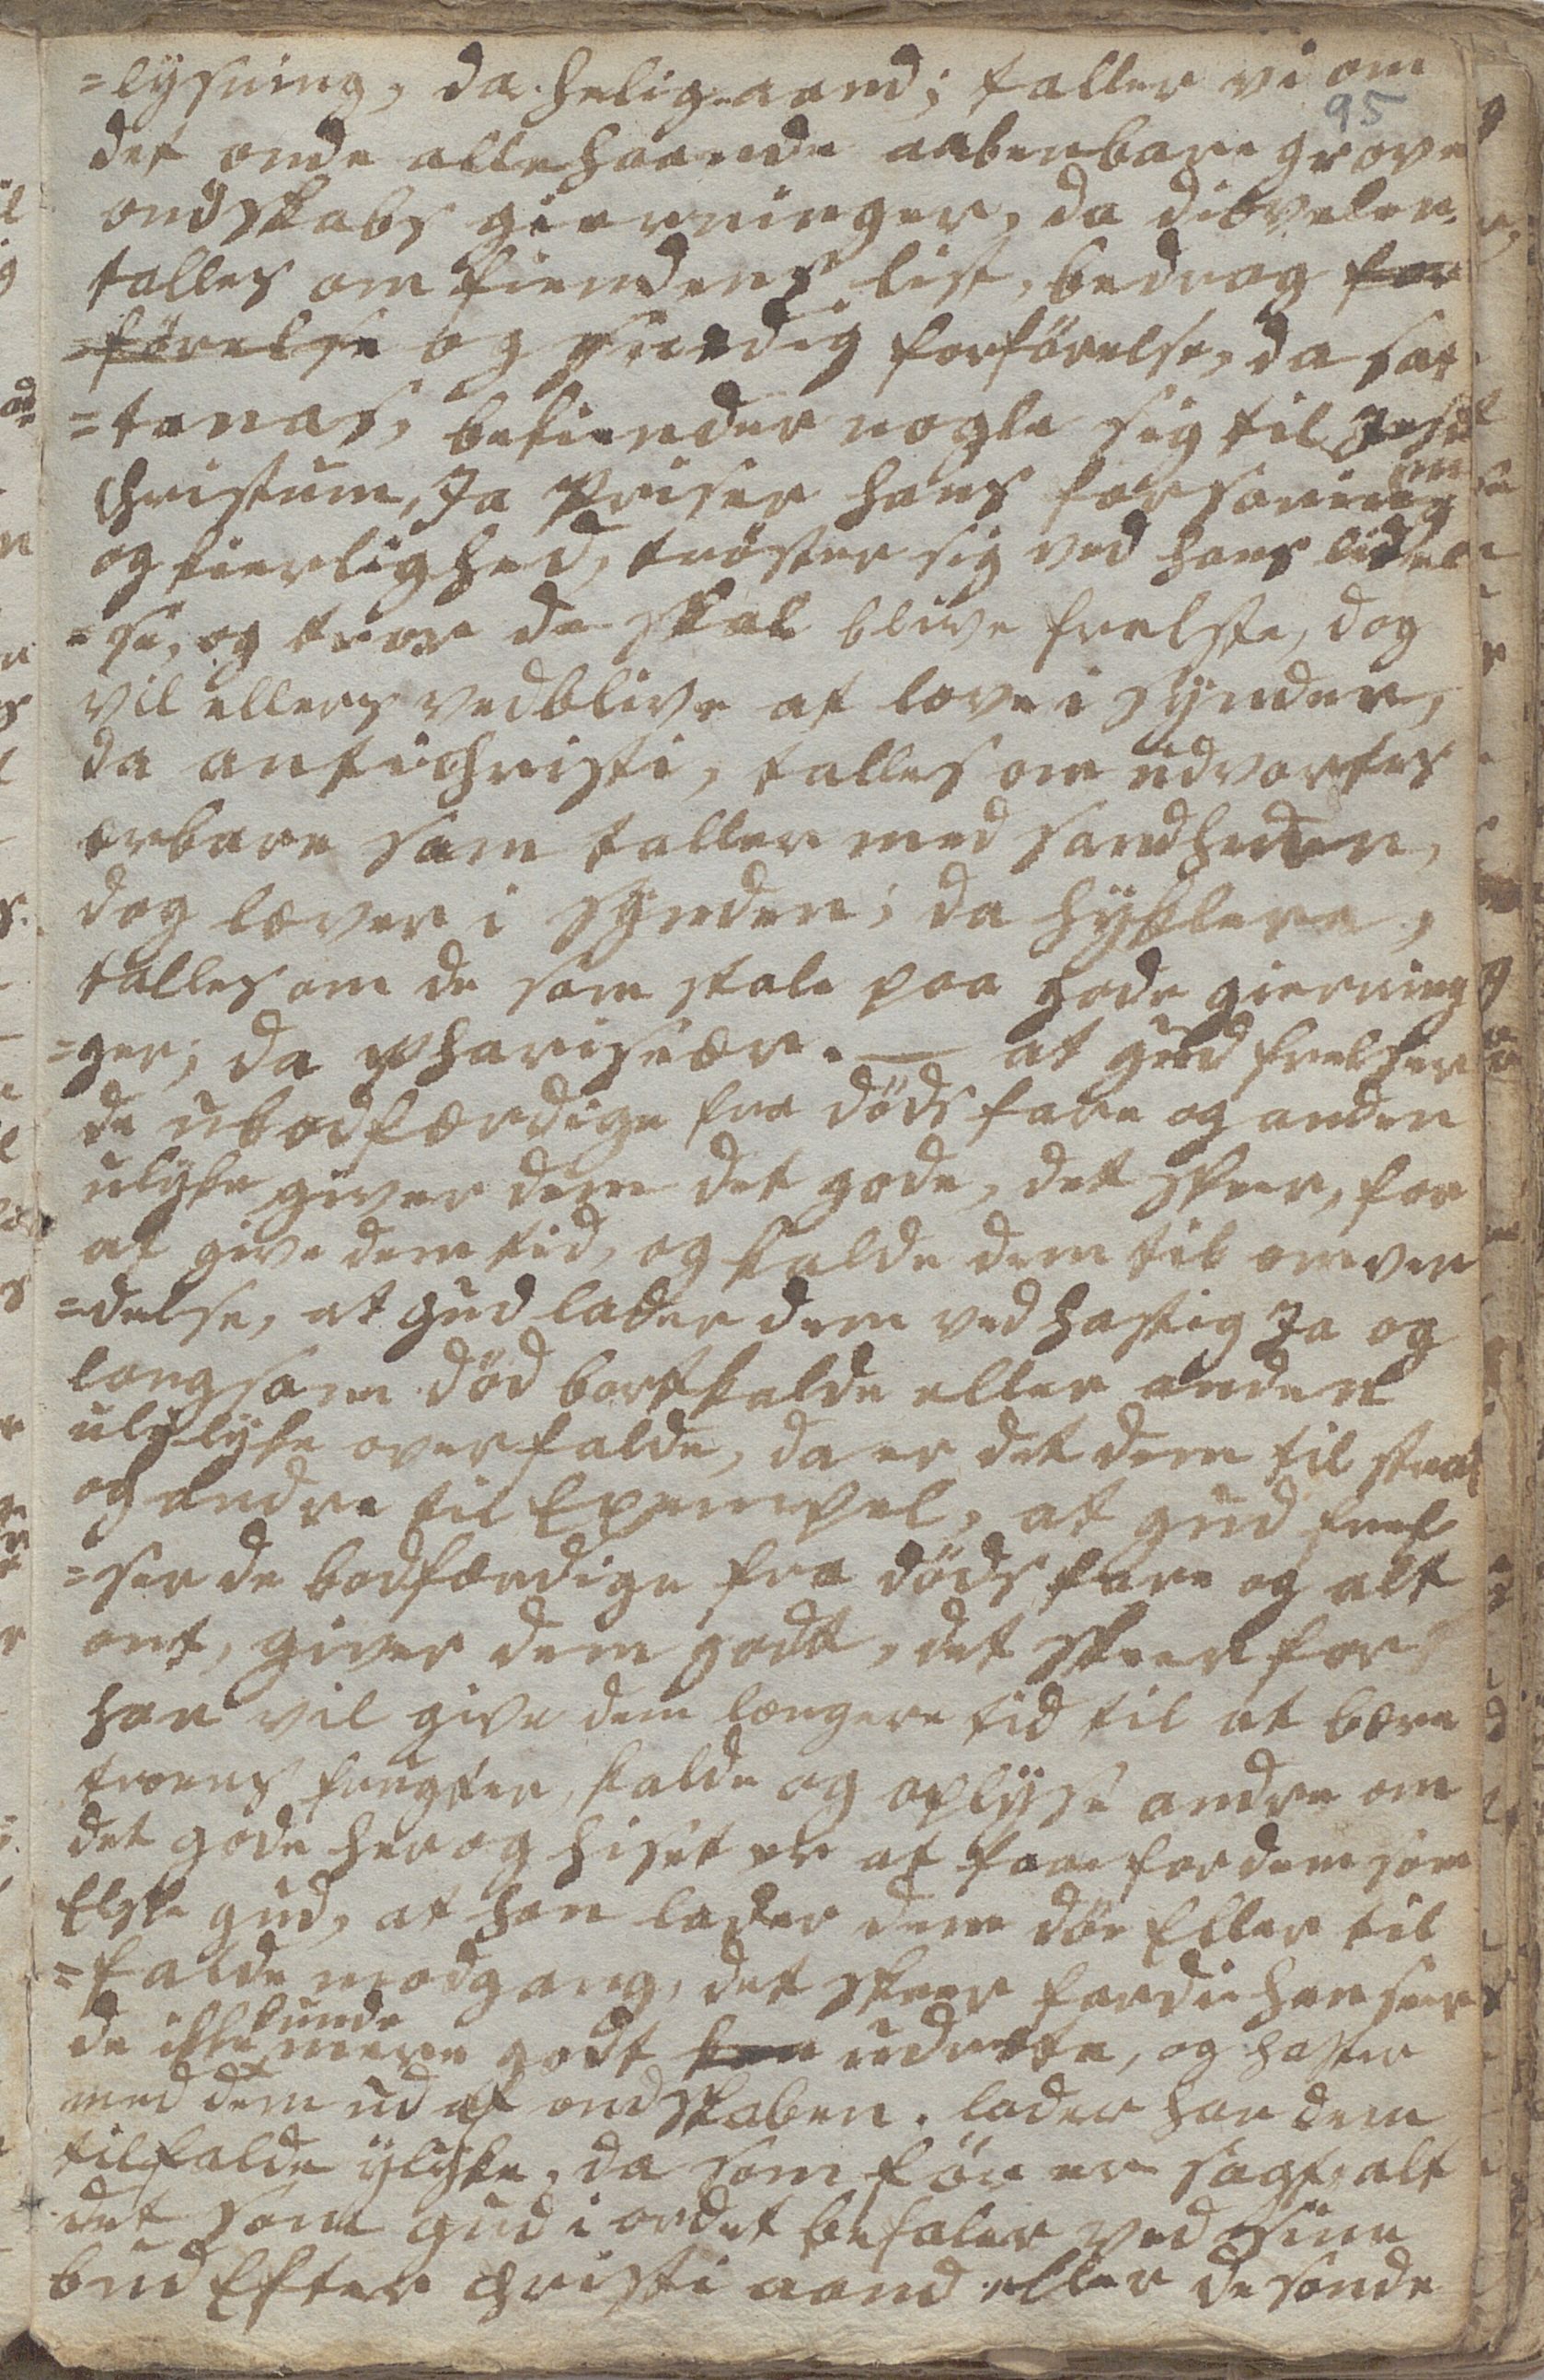 =lysning, da helig aand; taller vi om
95
det onde allehaande aabenbare grove
ondskabs gierninger, da dievelen,
talles om fiendens list, bedrag for
=förelse og snedig forförelse, da sa=
=tanas, bekiender nogle sig til Jesu
Christum, Ja priser hans forsoning
og kierlighed, tröster sig ved hans lidel
=se, og troer de skal blive frelste, dog
vil ellers vedblive at leve i synden,
da antichristi, talles om udvortes
erbare som taller med sandheden,
dog lever i synden; da hyklere,
talles om de som stole paa gode gierning
=ger, da Pharisæer. — at gud frelser
de ubodfærdige fra döds fare og anden
ulyke giver dem det gode, det skeer, for
at give dem tid, og kalde dem til omven
=delse, at gud lader dem ved hastig Ja og
langsom död bortkalde eller anden
ulylyke overfalde, da er det dem til straf
og andre til Exempel, at gud frel
=ser de bodfærdige fra döds fare og alt
ont, giver dem godt, det skeer for
han vil give dem længere tid til at bære
troens frugter, kalde og oplyse andre om
det gode her og hiset er at faae for dem som
Elske gud, at han lader dem döe Eller til
=falde modgang, det skeer fordi han seer
de ikke kunde mere godt kan udrette, og haster
med dem ud af ondskaben. lader han dem
tilfalde ulyke, da som för er sagt, alt
det som gud i ordet befaler ved sine
bud Efter Christi aand eller de sande